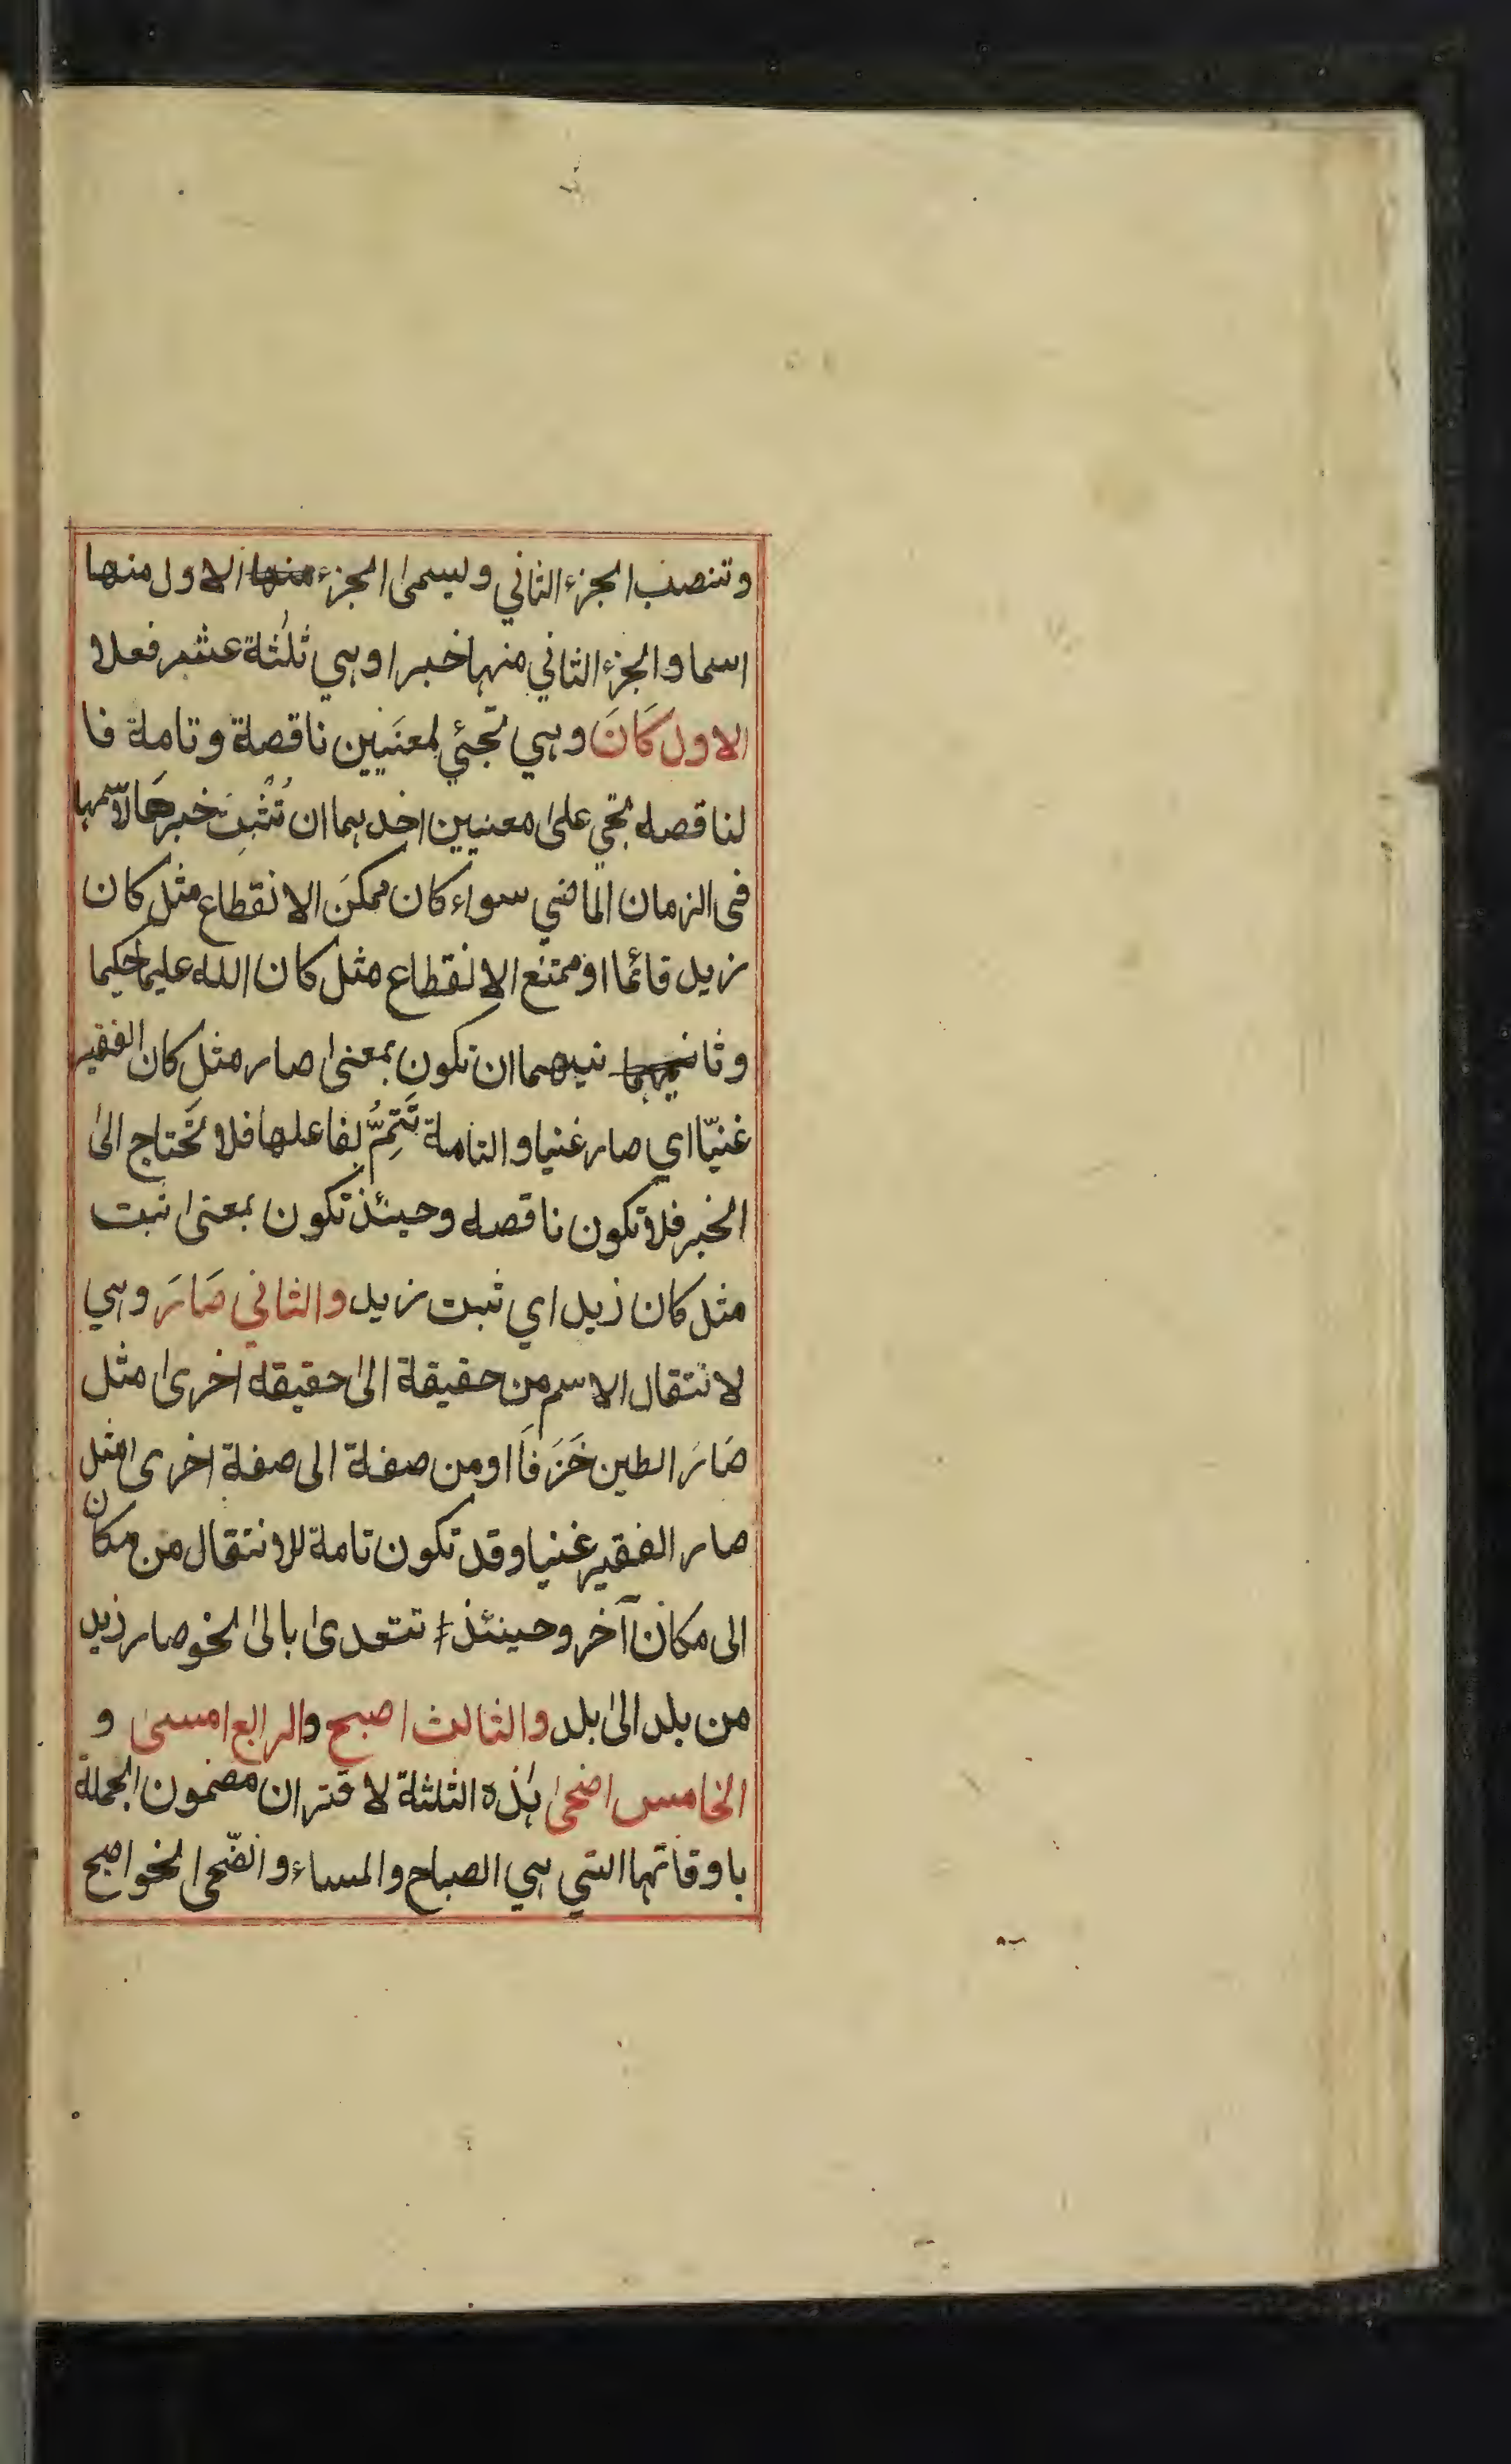 وتنصب الجزء الثاني ويسمى الجزء منها الاول منها
اسما والجزء الثاني منها خبرا وهي ثلٰثة عشر فعلا
الاول كَانَ وهي تجئي لمعنَيين ناقصة وتامة فا
لناقصه تجي على معنيين احدهما ان تُثْبِتَ خبرها لاسمها
فى الزمان الماضي سواء كان ممكنَ الانقطاع مثل كان
زيد قائما او ممتنع الانقطاع مثل كان الله عليما حكيما
وثانيهما نيهما ان تكون بمعنى صار مثل كان الفقير
غنيّا اي صار غنيا والتامة تَتِمُّ بفاعلها فلا تَحتاج الى
الخبر فلا تكون ناقصه وحينئذ تكون بمعنى ثبت
مثل كان زيد اي ثبت زيد والثاني صَارَ وهي
لانتقال الاسم من حقيقة الى حقيقه اخرى مثل
صَارَ الطين خَزَفاً او من صفة الى صفة اخرى مثل
صار الفقير غنيا وقد تكون تامة للانتقال من مكان
الى مكان آخر وحينئذ تتعدى بالى نحو صار زيد
من بلد الى بلد والثالث اصبح والرابع امسى و
الخامس اضحى هٰذه الثلثة لاقتران مضمون الجملة
باوقاتها التي هي الصباح والمساء والضّحى نحو اصبح